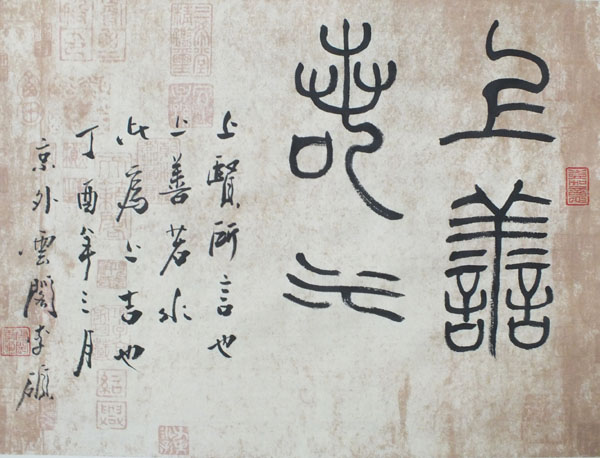 上譱
若水
上賢所言也
上善若水
此為上吉也
丁酉年三月
京外雲閣李碩